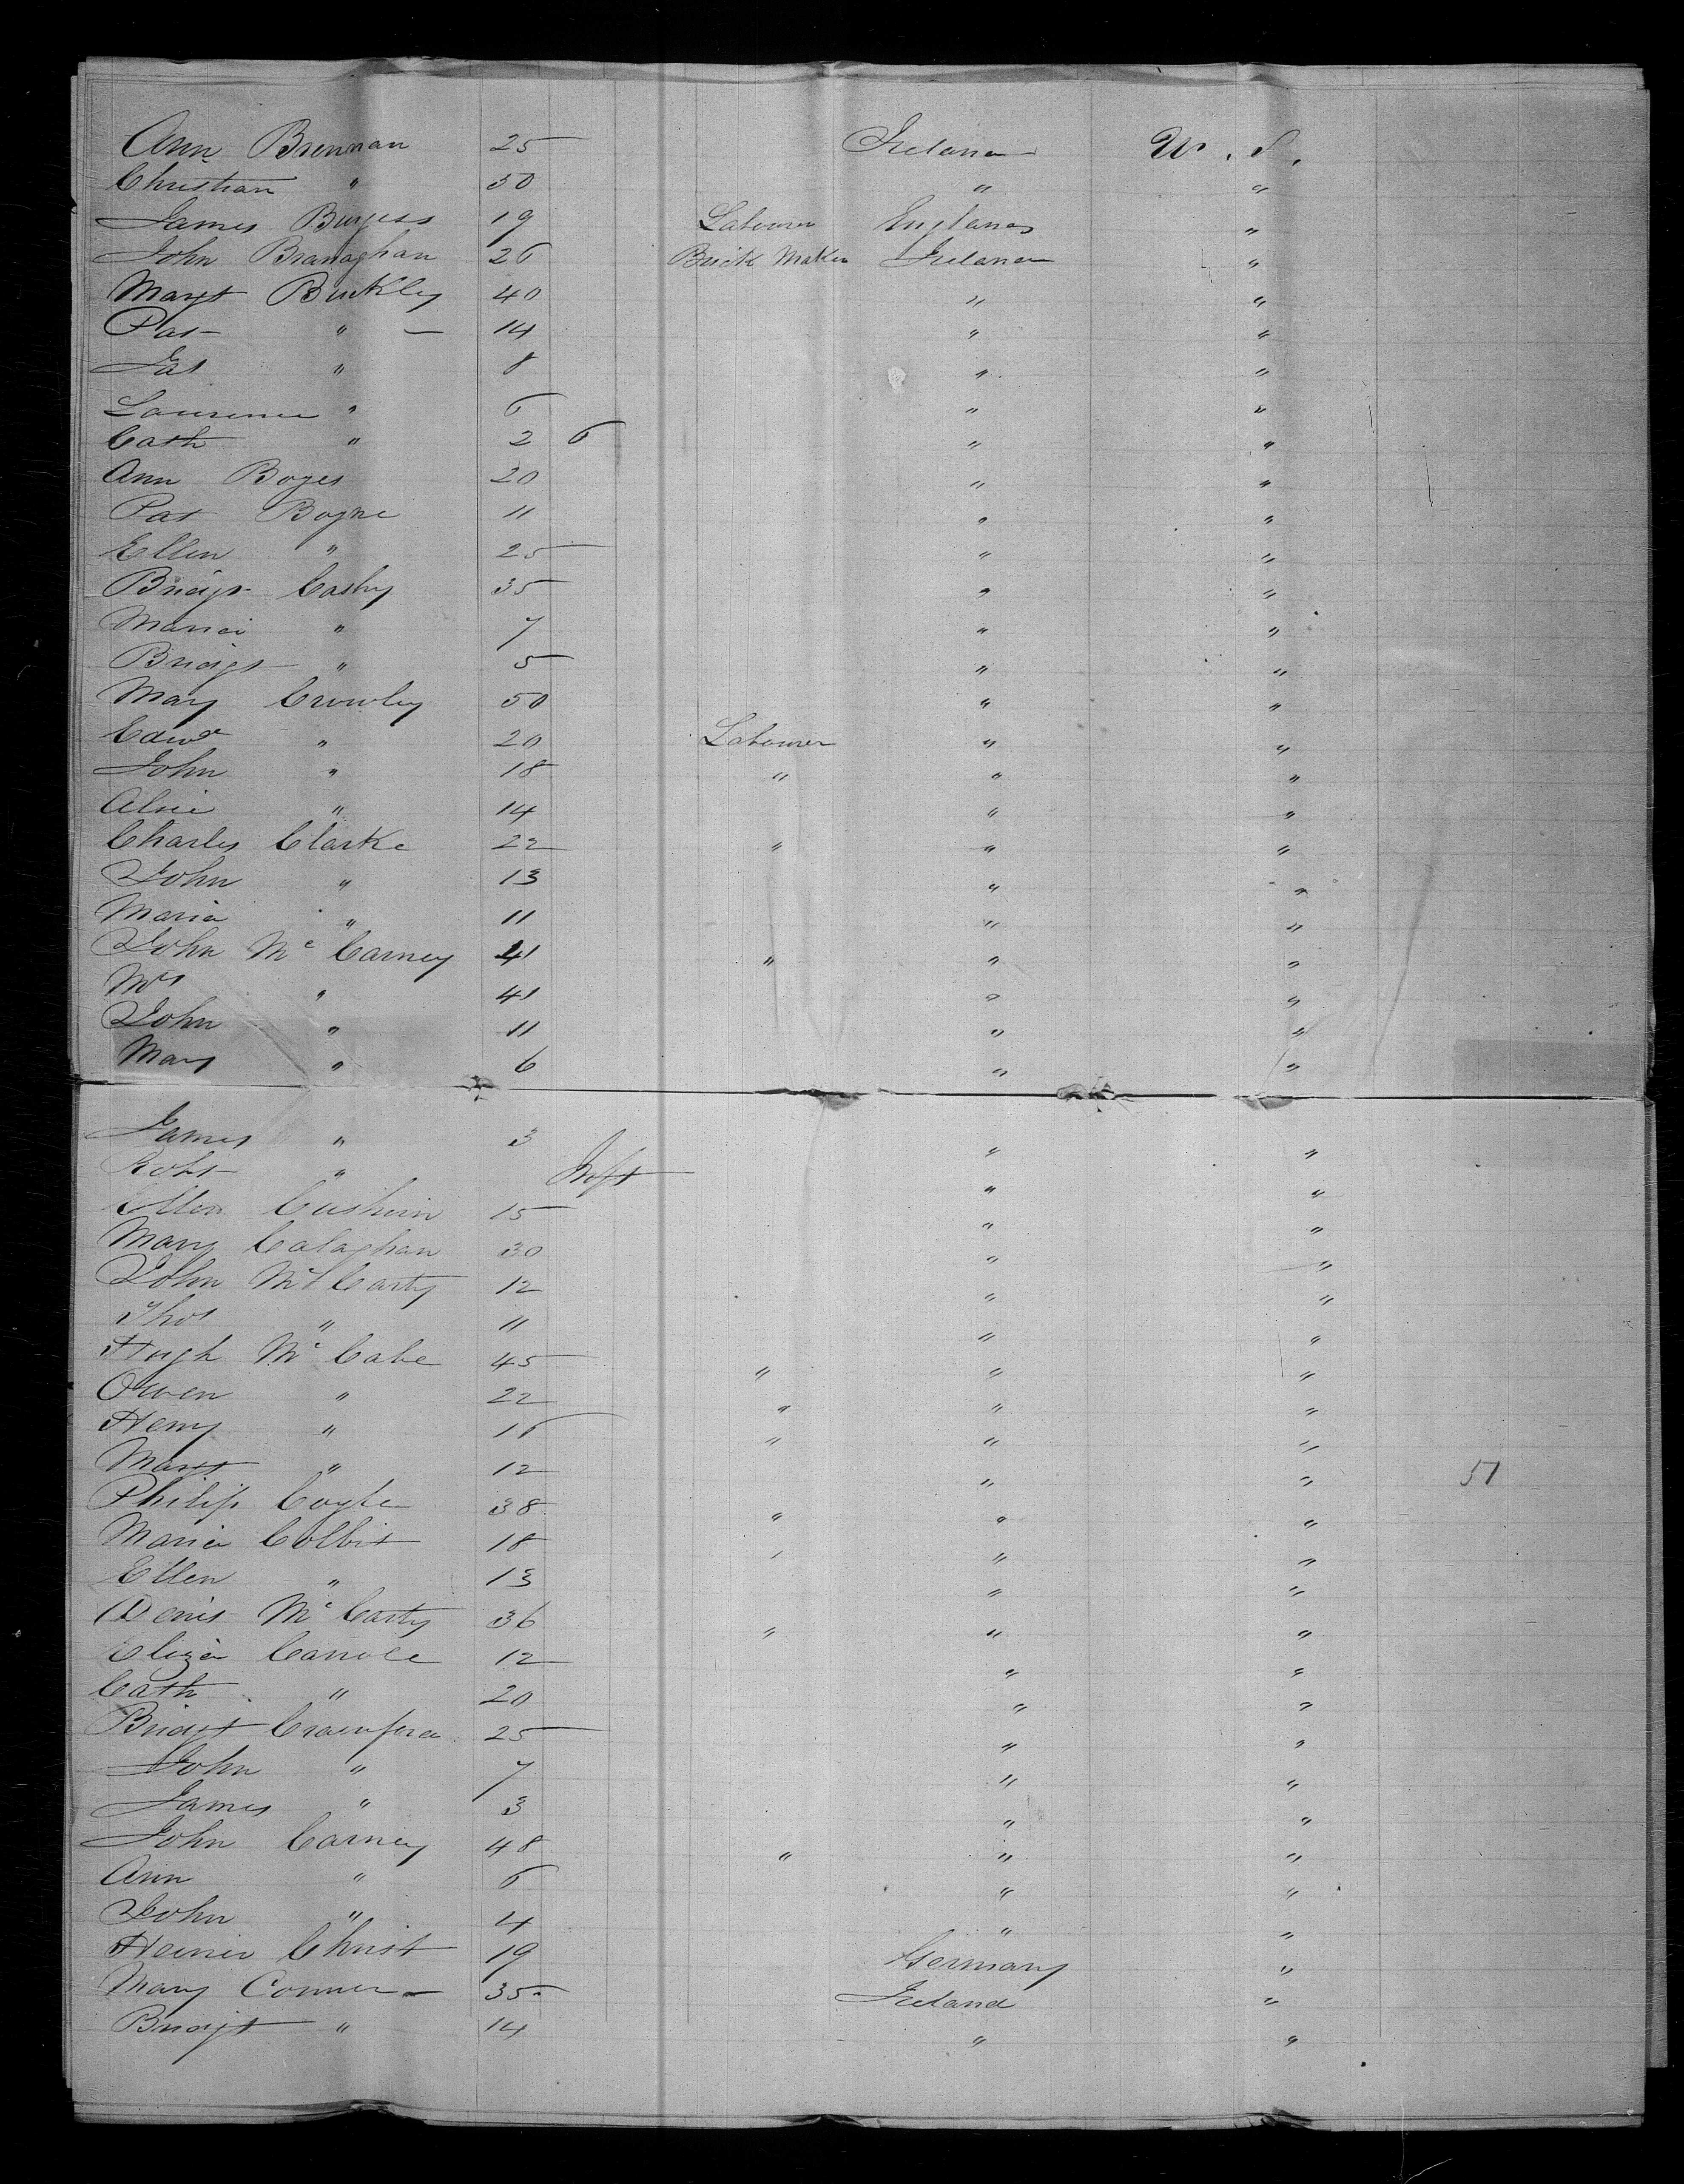 Ann Brennan 25 Ireland U. S.
Christian " 50 " "
James Burgess 19 Labourer England "
John Branaghan 26 Brick Maker Ireland "
Margt Buckley 40 " "
Pat " — 14 " "
Jas " 8 " "
Laurence " 6 " "
Cath " 2 6 " "
Ann Boyes 20 " "
Pat Boyne 11 " "
Ellen " 25 " "
Bridgt Casby 35 " "
Maria " 7 " "
Bridgt " 5 " "
Mary Crowley 50 " "
Edwd " 20 Labourer " "
John " 18 " " "
Alice " 14 " "
Charles Clarke 22 " " "
John " 13 " "
Maria " 11 " "
John Mc Carney 41 " " "
Mrs " 41 " "
John " 11 " "
Mary " 6 " "
James " 3 " "
Robt " Inft " "
Ellen Cushion 15 " "
Mary Calaghan 30 " "
John Mc Carty 12 " "
Thos " 11 " "
Hugh Mc Cabe 45 " " "
Owen " 22 " " "
Henry " 16 " " "
Margt " 12 " " 51
Philip Coyle 38 " " "
Maria Colbit 18 " " "
Ellen " 13 " "
Denis Mc Carty 36 " " "
Eliza Carrole 12 " "
Cath " 20 " "
Bridgt Crawford 25 " "
John " 7 " "
James " 3 " "
John Carney 48 " " "
Ann " 6 " "
John " 4 " "
Christ 19 Germany "
Mary Conner — 35 Ireland "
Bridgt " 14 " "